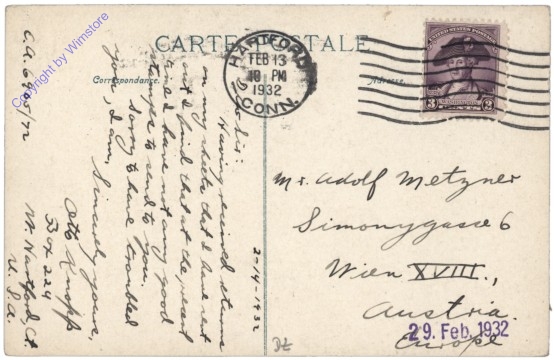 CARTE POSTALE
Correspondance.
Adresse.
HARTFORD
FEB 13
10 PM
1932
CONN.
UNITED STATES POSTAGE
WASHINGTON
3 3
2-14-1932
Having received returns
on my sheets that I have sent
out I find that at the present
time I have not any good
stamps to send to you.
Sorry to have troubled
you, I am,
Sincerely yours,
Otto Knopf
Box 224
W. Hartford, Ct.
U.S.A.
Mr. Adolf Metzner
Simonygasse 6
Wien XVIII.,
Austria.
Europe
29. Feb. 1932
Copyright by Wimstore